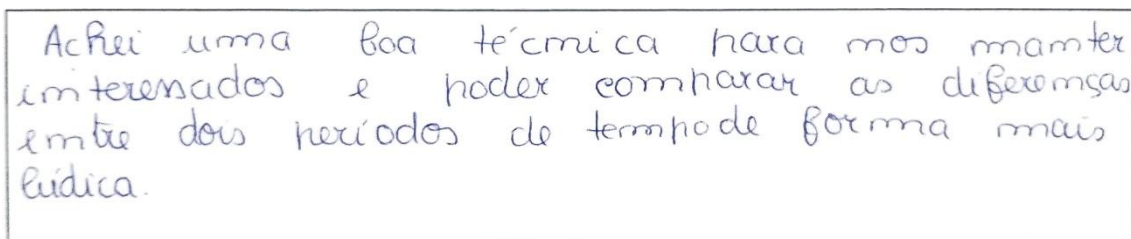 Achei uma boa técnica para nos manter
interessados e poder comparar as diferenças
entre dois períodos de tempo de forma mais
lúdica.